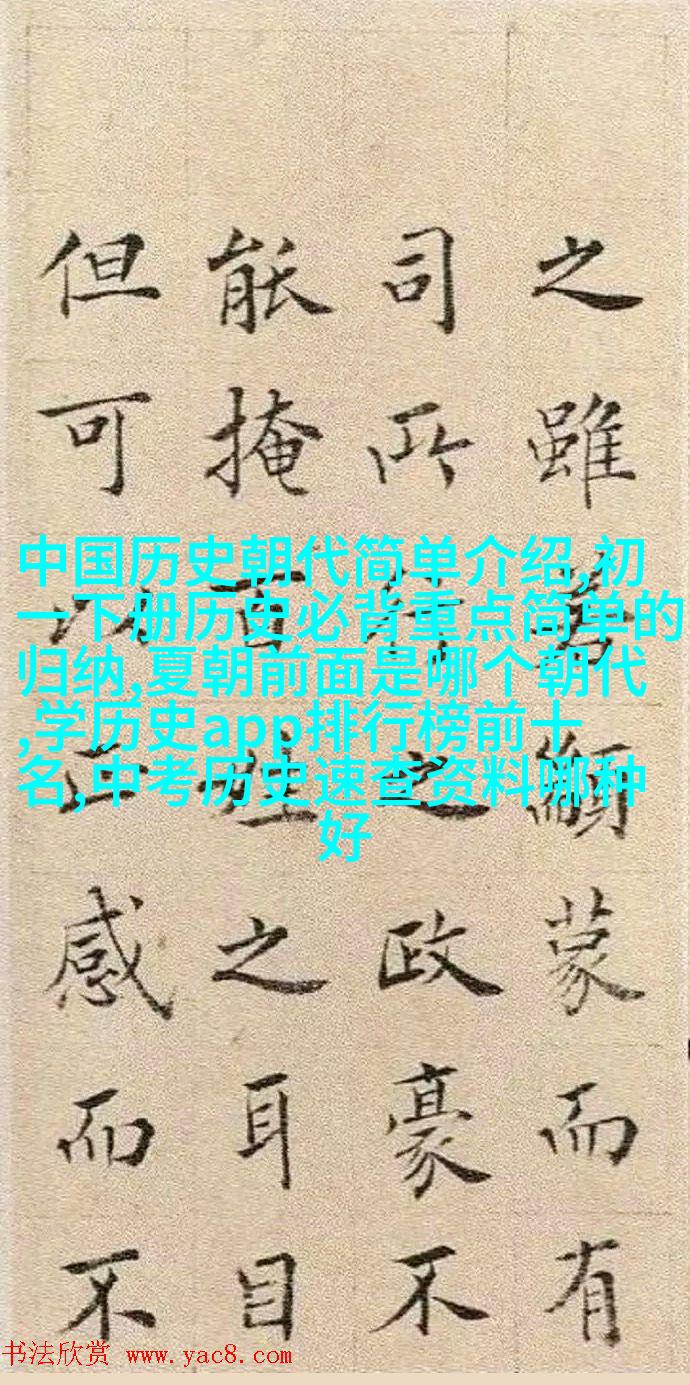 中国历史朝代简单介绍,初
一下册历史必背重点简单的
归纳,夏朝前面是哪个朝代
,学历史app排行榜前十
名,中考历史速查资料哪种
好
之雖若顓蒙而有
司所行之政豪不
能掩百姓之耳目
但可以正感而不
书法欣赏 www.yac8.com